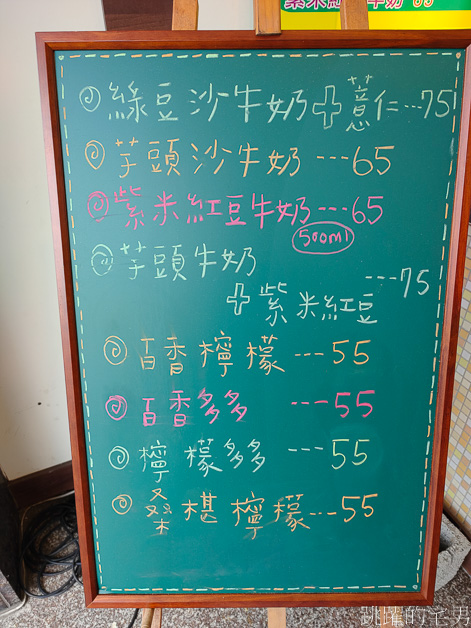 紫米紅豆牛奶 65
綠豆沙牛奶+薏仁---75
芋頭沙牛奶---65
紫米紅豆牛奶---65
500ml
芋頭牛奶
+紫米紅豆---75
百香檸檬---55
百香多多---55
檸檬多多---55
桑椹檸檬---55
跳躍的宅男